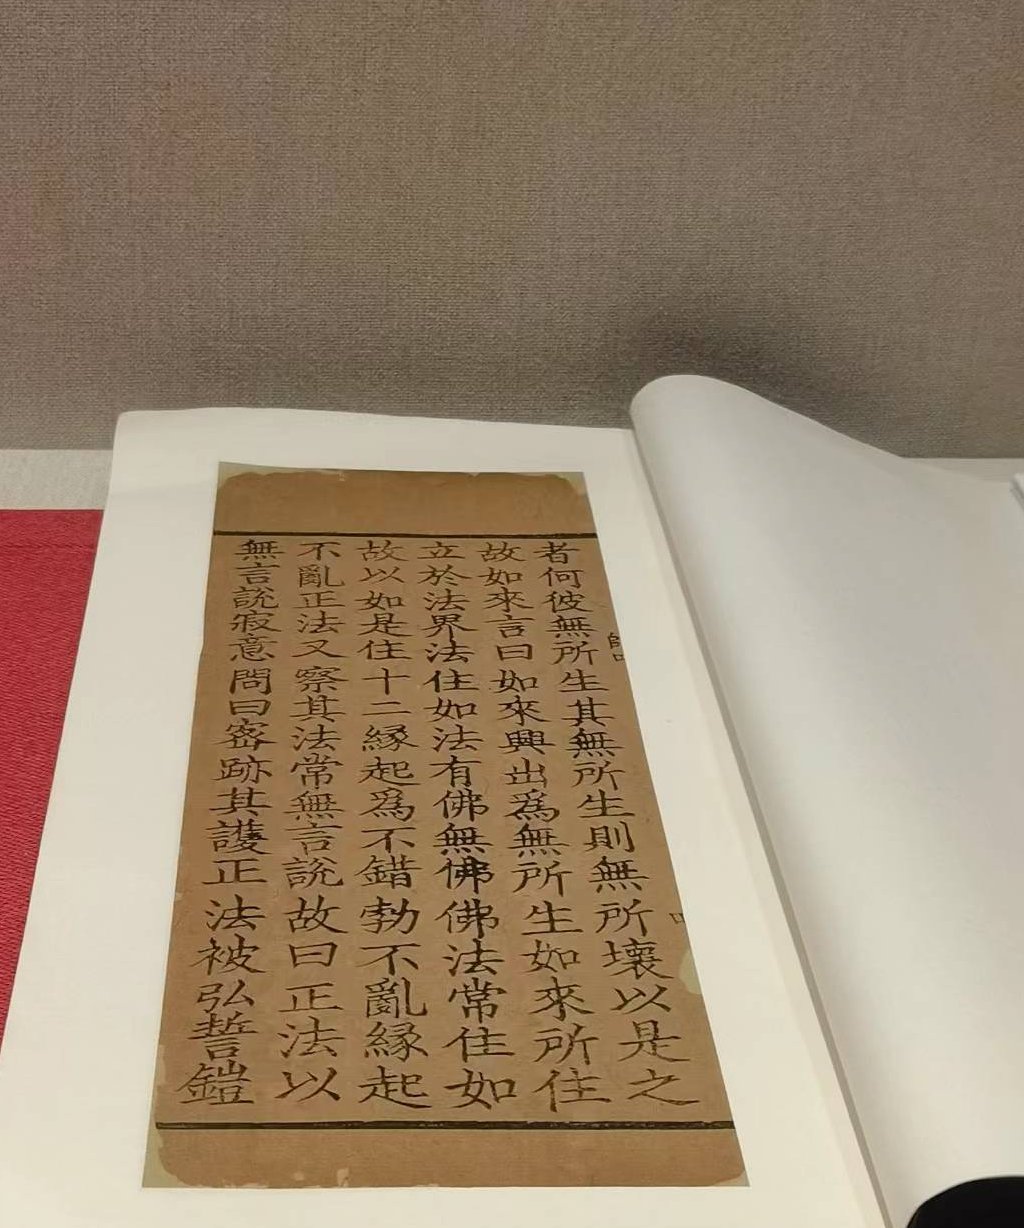 者何彼無所生其無所生則無所壞以是之
故如來言曰如來興出為無所生如來所住
立於法界法住如法有佛無佛佛法常住如
故以如是住十二緣起為不錯勃不亂緣起
不亂正法又察其法常無言說故曰正法以
無言說寂意問曰密跡其護正法被弘誓鎧